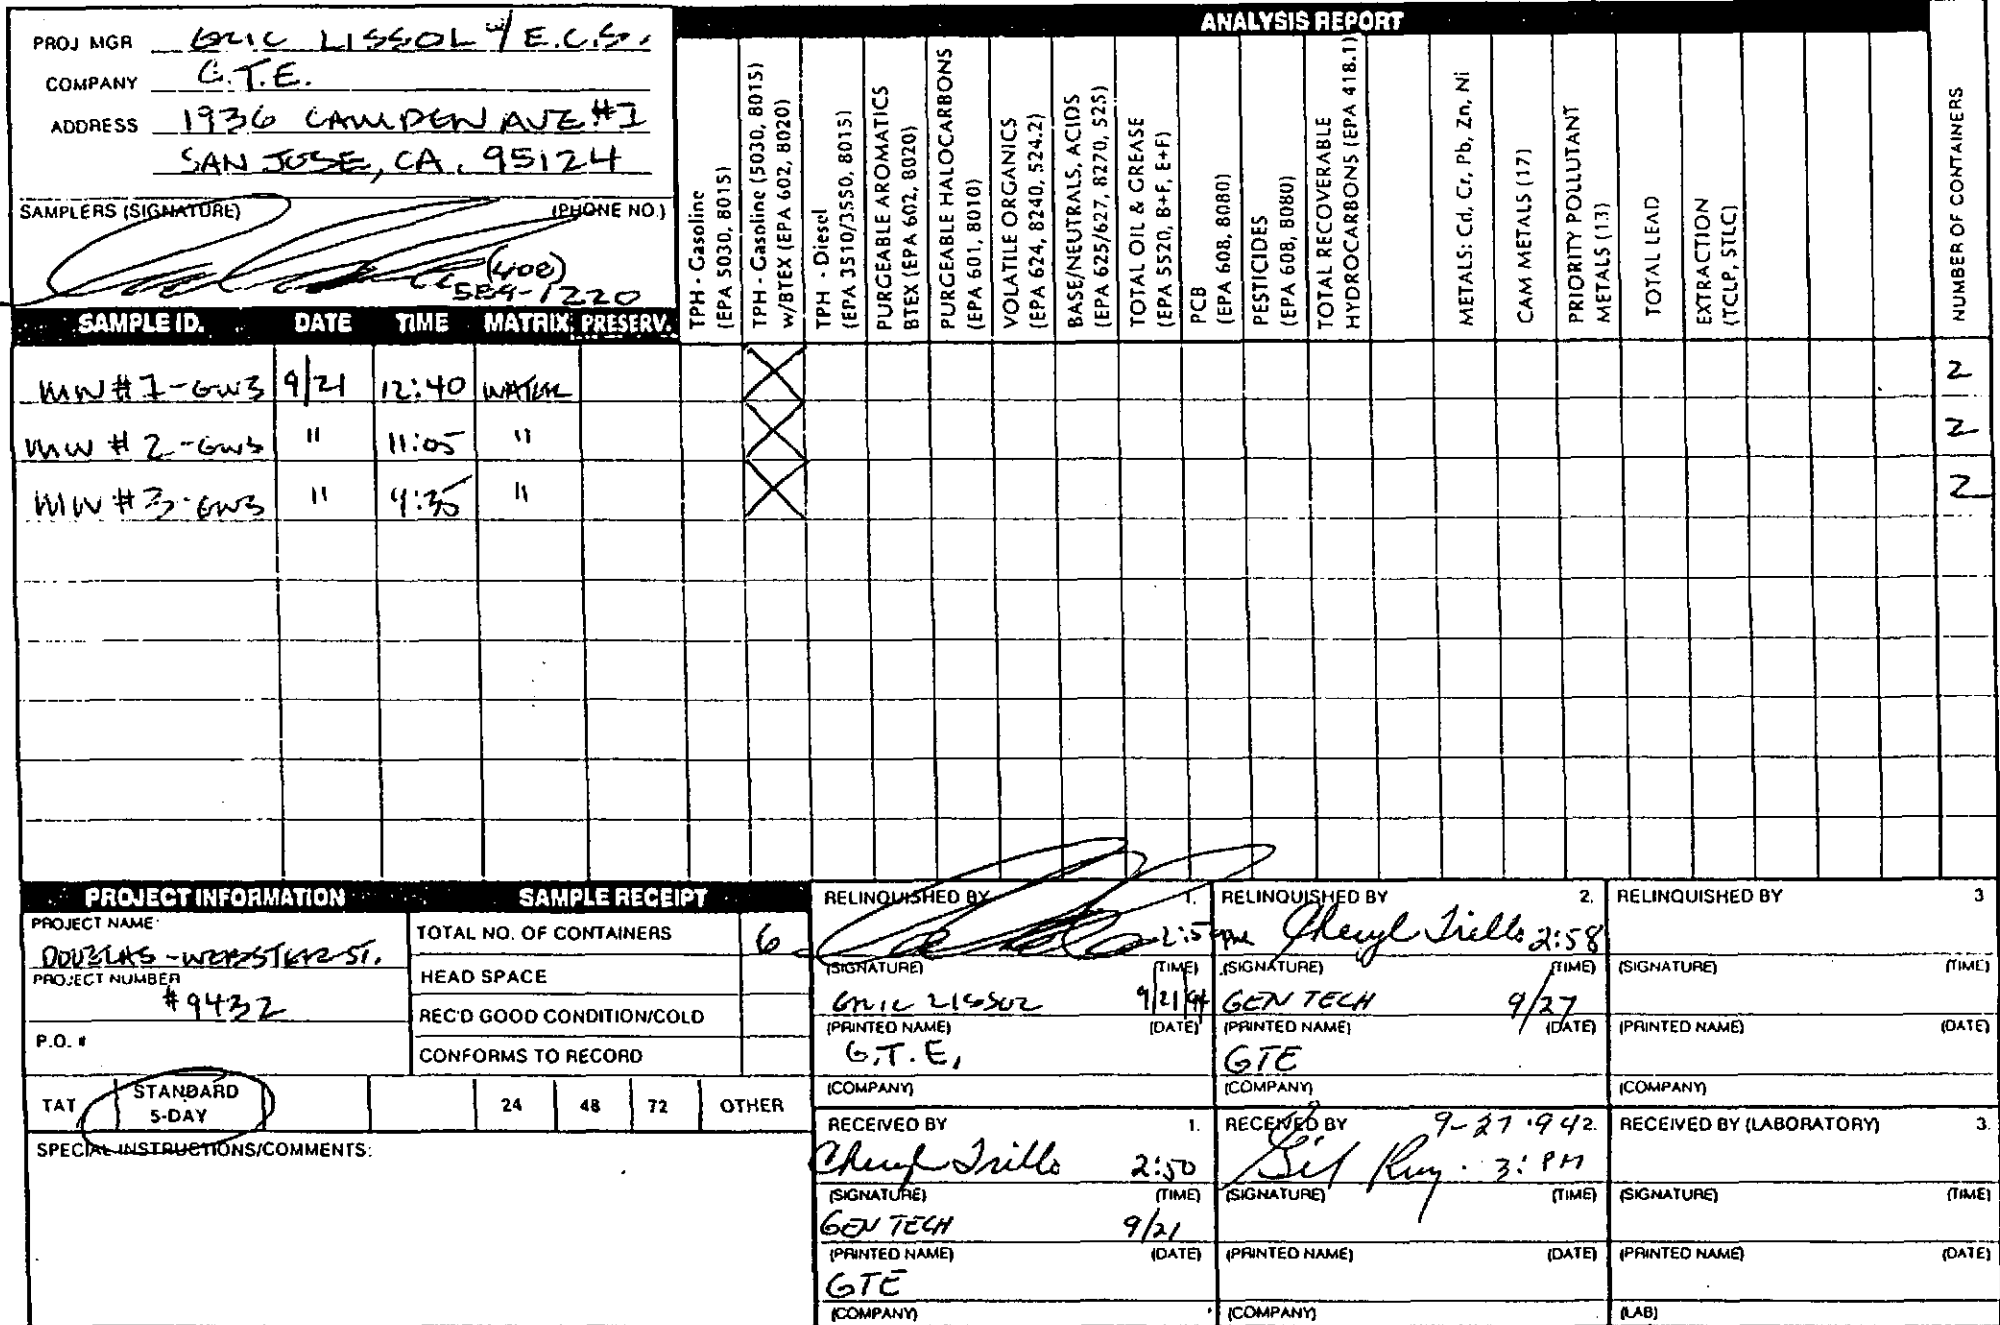 ANALYSIS REPORT
PROJ MGR ERIC LISSOL w/ E.C.S.
COMPANY G.T.E.
ADDRESS 1936 CAMDEN AVE #1
SAN JOSE, CA. 95124
SAMPLERS (SIGNATURE) (PHONE NO.)
(408)
559-1220
TPH - Gasoline
(EPA 5030, 8015)
TPH - Gasoline (5030, 8015)
w/BTEX (EPA 602, 8020)
TPH - Diesel
(EPA 3510/3550, 8015)
PURGEABLE AROMATICS
BTEX (EPA 602, 8020)
PURGEABLE HALOCARBONS
(EPA 601, 8010)
VOLATILE ORGANICS
(EPA 624, 8240, 524.2)
BASE/NEUTRALS, ACIDS
(EPA 625/627, 8270, 525)
TOTAL OIL & GREASE
(EPA 5520, B+F, E+F)
PCB
(EPA 608, 8080)
PESTICIDES
(EPA 608, 8080)
TOTAL RECOVERABLE
HYDROCARBONS (EPA 418.1)
METALS: Cd, Cr, Pb, Zn, Ni
CAM METALS (17)
PRIORITY POLLUTANT
METALS (13)
TOTAL LEAD
EXTRACTION
(TCLP, STLC)
NUMBER OF CONTAINERS
SAMPLE ID. DATE TIME MATRIX PRESERV.
MW #1-GW3 9/21 12:40 WATER X 2
MW #2-GW3 " 11:05 " X 2
MW #3-GW3 " 9:35 " X 2
PROJECT INFORMATION
PROJECT NAME:
DOUGLAS - WEBSTER ST.
PROJECT NUMBER
#9432
P.O. #
SAMPLE RECEIPT
TOTAL NO. OF CONTAINERS 6
HEAD SPACE
REC'D GOOD CONDITION/COLD
CONFORMS TO RECORD
TAT STANDARD 5-DAY 24 48 72 OTHER
SPECIAL INSTRUCTIONS/COMMENTS:
RELINQUISHED BY 1.
(SIGNATURE) (TIME)
ERIC LISSOL 9/21/94
(PRINTED NAME) (DATE)
G.T.E.
(COMPANY)
RELINQUISHED BY 2.
Cheryl Trillo 2:58
(SIGNATURE) (TIME)
GEN TECH 9/27
(PRINTED NAME) (DATE)
GTE
(COMPANY)
RELINQUISHED BY 3
(SIGNATURE) (TIME)
(PRINTED NAME) (DATE)
(COMPANY)
RECEIVED BY 1.
Cheryl Trillo 2:50
(SIGNATURE) (TIME)
GEN TECH 9/21
(PRINTED NAME) (DATE)
GTE
(COMPANY)
RECEIVED BY 9-27-94 2.
3: PM
(SIGNATURE) (TIME)
(PRINTED NAME) (DATE)
(COMPANY)
RECEIVED BY (LABORATORY) 3.
(SIGNATURE) (TIME)
(PRINTED NAME) (DATE)
(LAB)